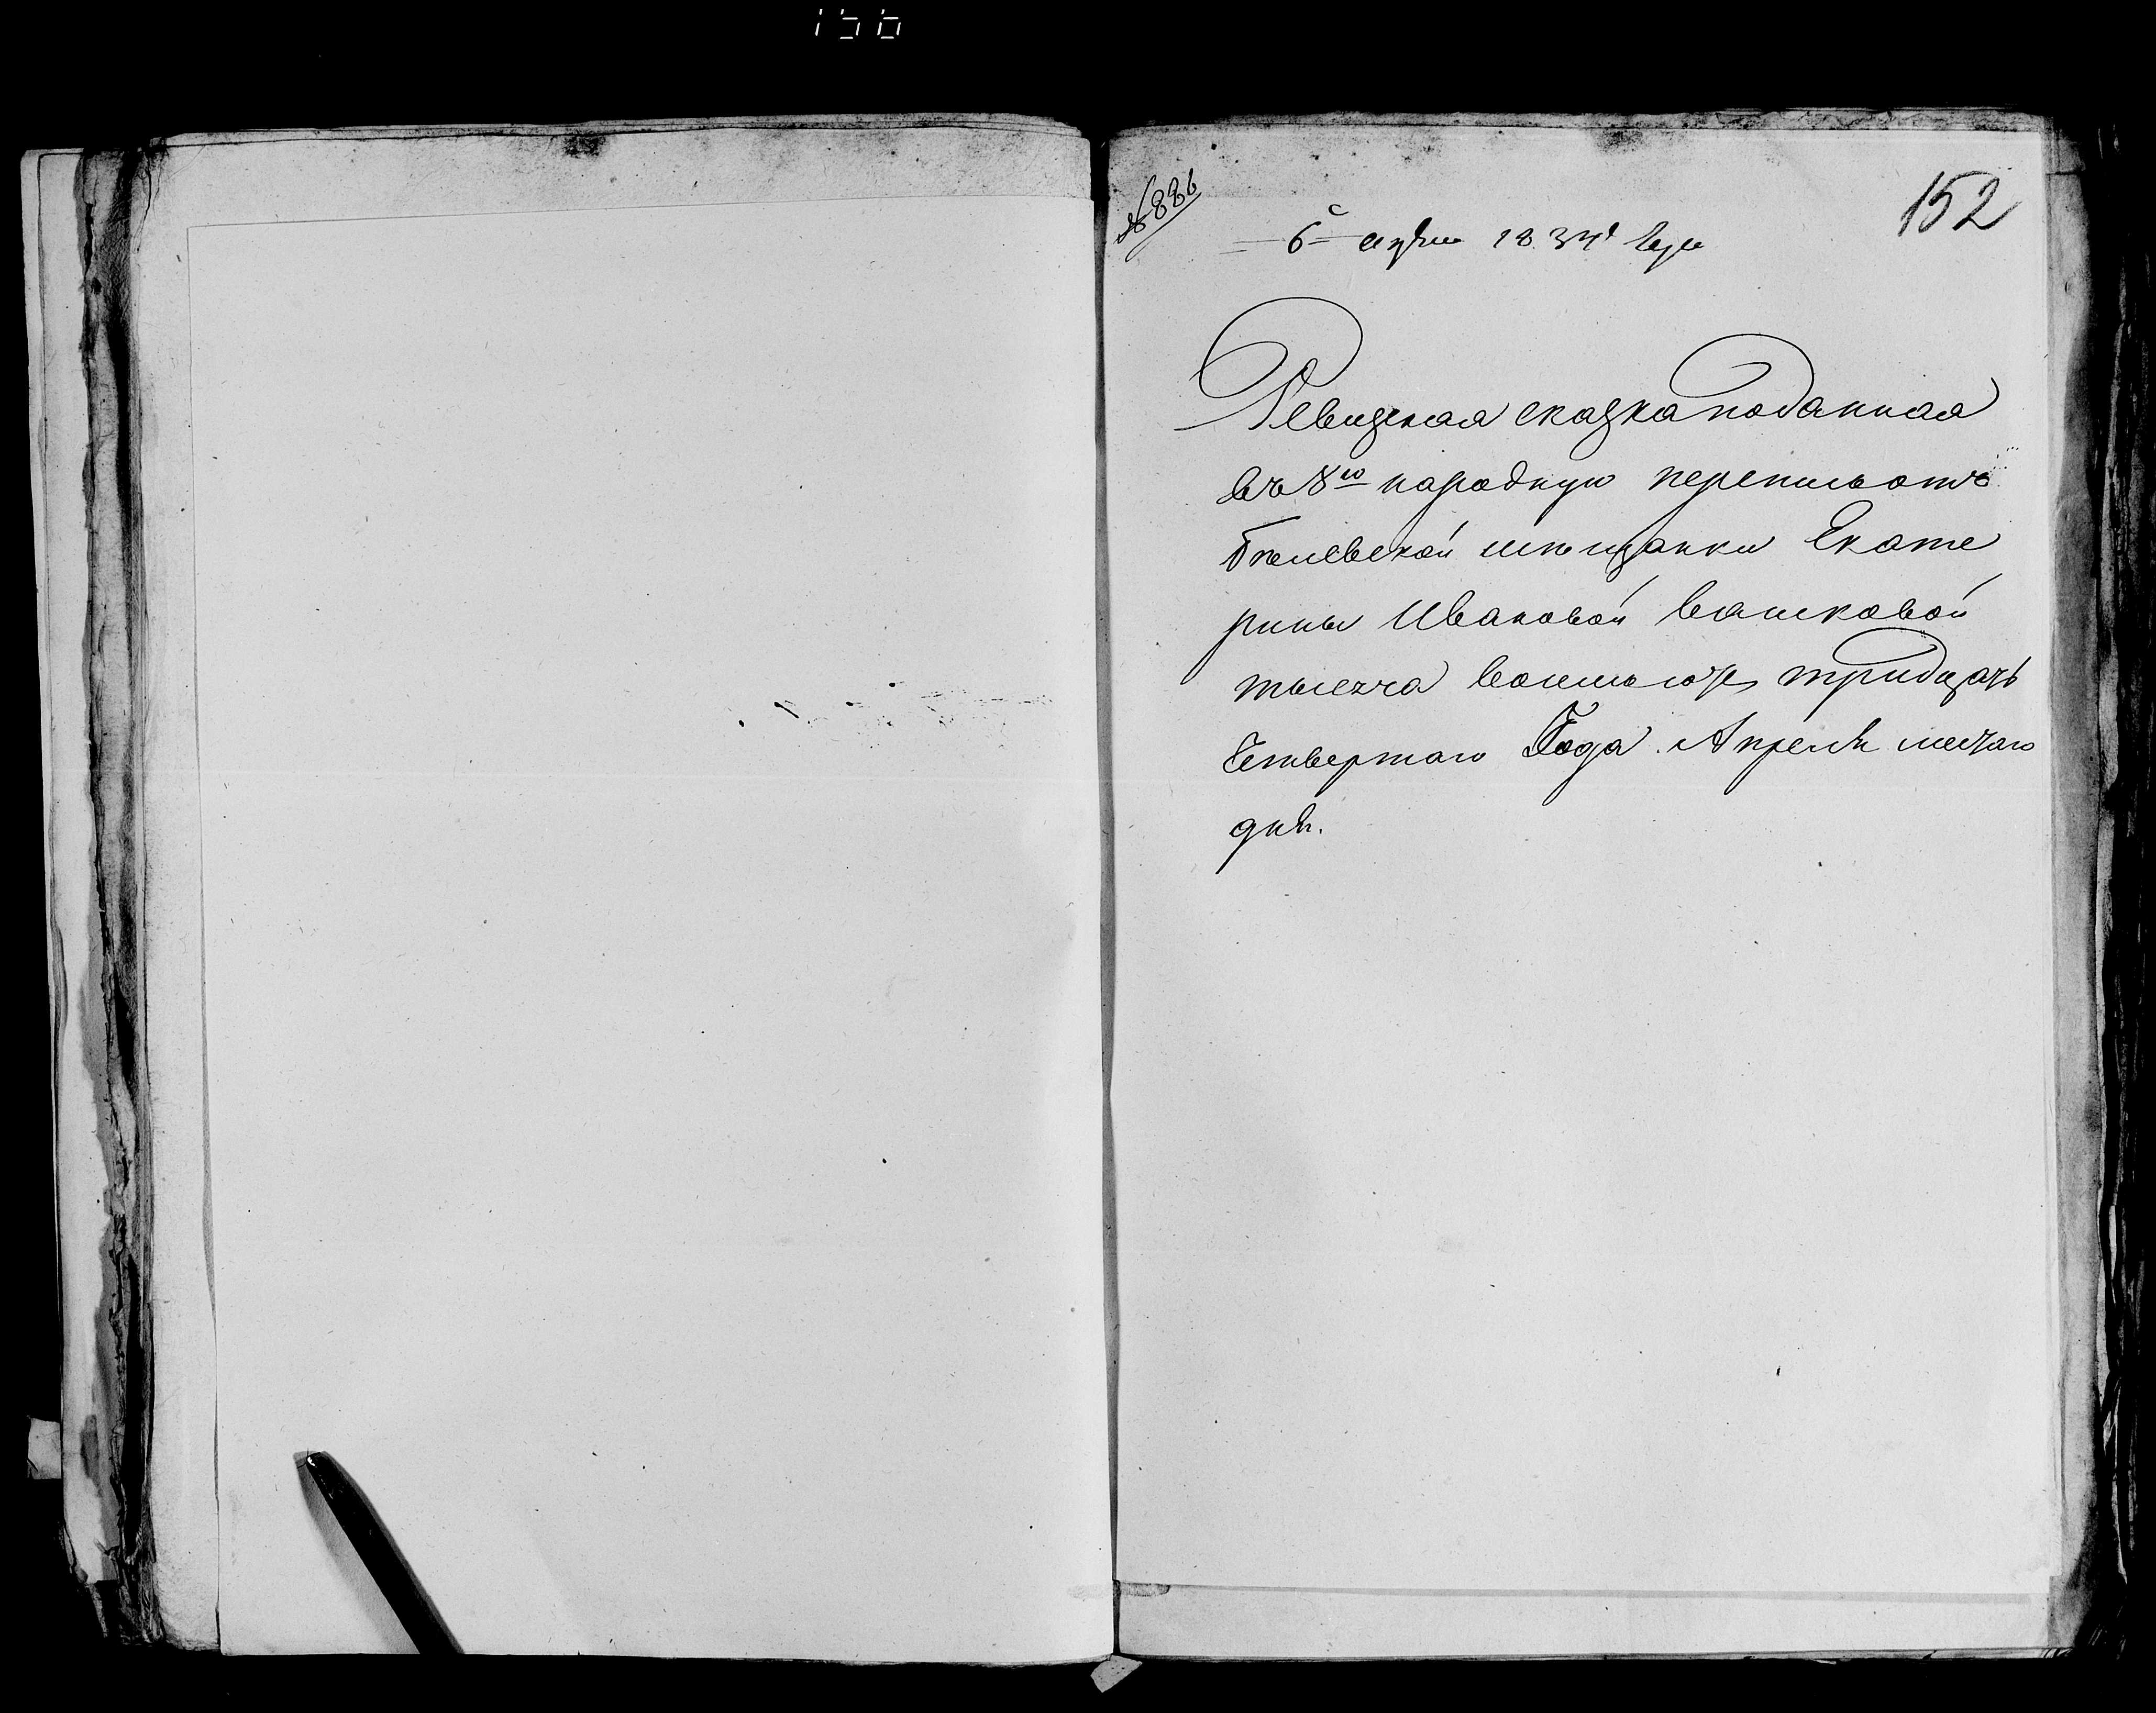 156
№ 886
152
6 1834 года
Ревизская сказка поданная
въ 8ю народную перепись отъ
Белевской мещанки Екате
рины Ивановой
тысеча восмьсотъ тридцать
Четвертаго Года. Апреля
дня.